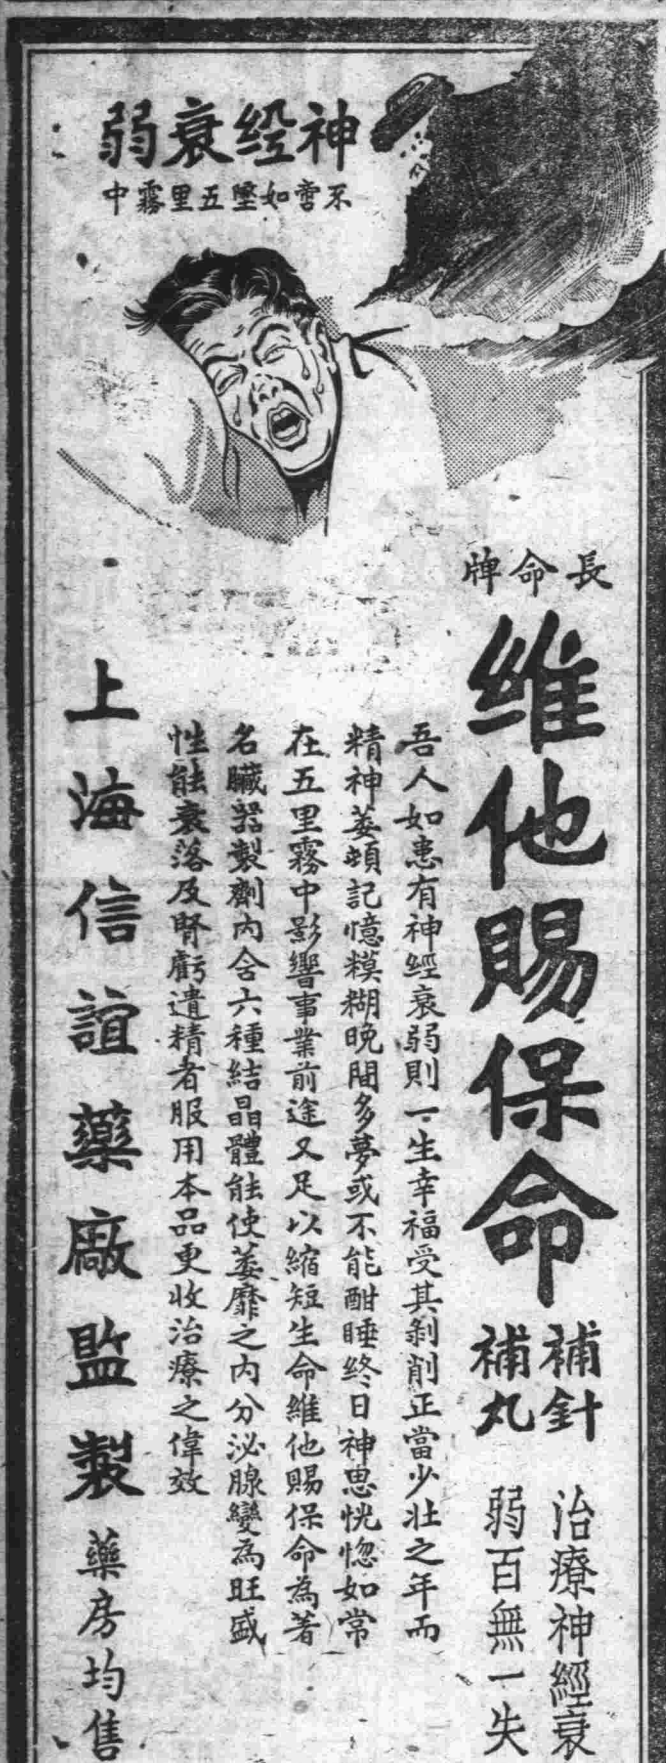 神經衰弱
不啻如墜五里霧中
長命牌
維他賜保命
補針
補丸
治療神經衰
弱百無一失
吾人如患有神經衰弱則一生幸福受其剝削正當少壯之年而
精神萎頓記憶糢糊晚間多夢或不能酣睡終日神思恍惚如常
在五里霧中影響事業前途又足以縮短生命維他賜保命為著
名臟器製劑內含六種結晶體能使萎靡之內分泌腺變為旺盛
性能衰落及腎虧遺精者服用本品更收治療之偉效
上海信誼藥廠監製
藥房均售